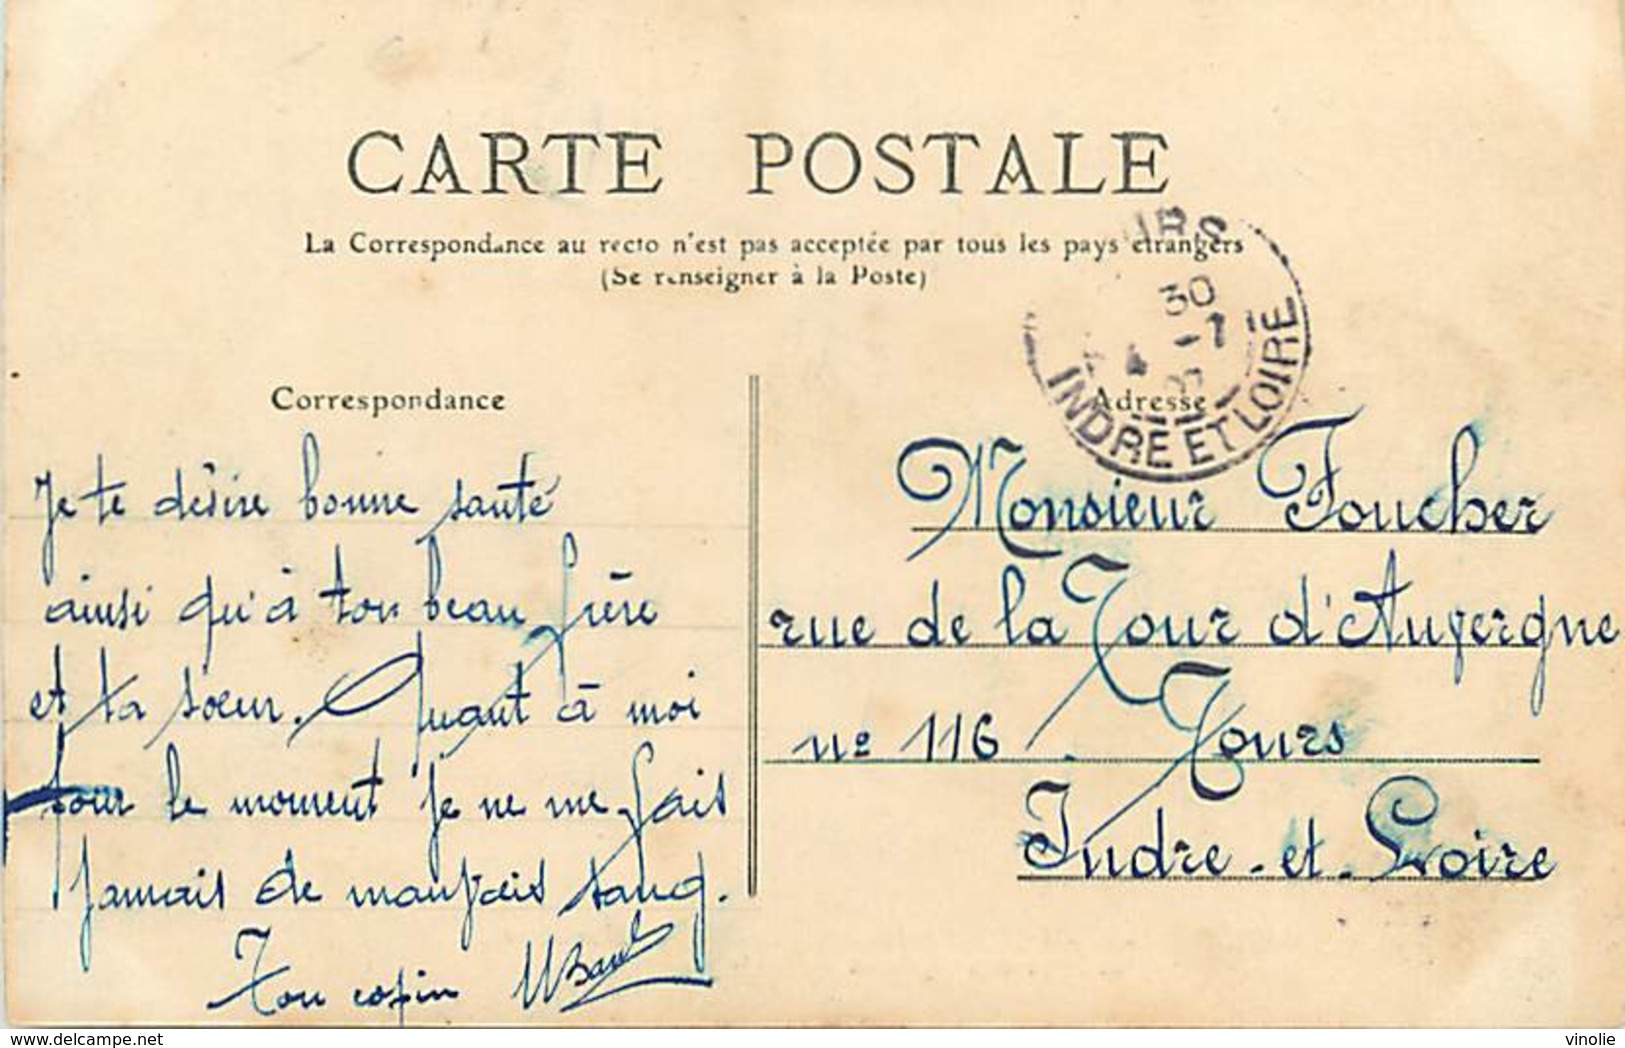 CARTE POSTALE
La Correspondance au recto n'est pas acceptée par tous les pays étrangers
(Se renseigner à la Poste)
30
4 -7
INDRE ET LOIRE
Correspondance
Je te désire bonne santé
ainsi qu'à ton beau frère
et ta sœur. Quant à moi
pour le moment je ne me fais
jamais de mauvais sang.
Ton copin
Adresse
Monsieur Foucher
rue de la Tour d'Auvergne
nº 116. Tours
Indre-et-Loire
delcampe.net
vinolie